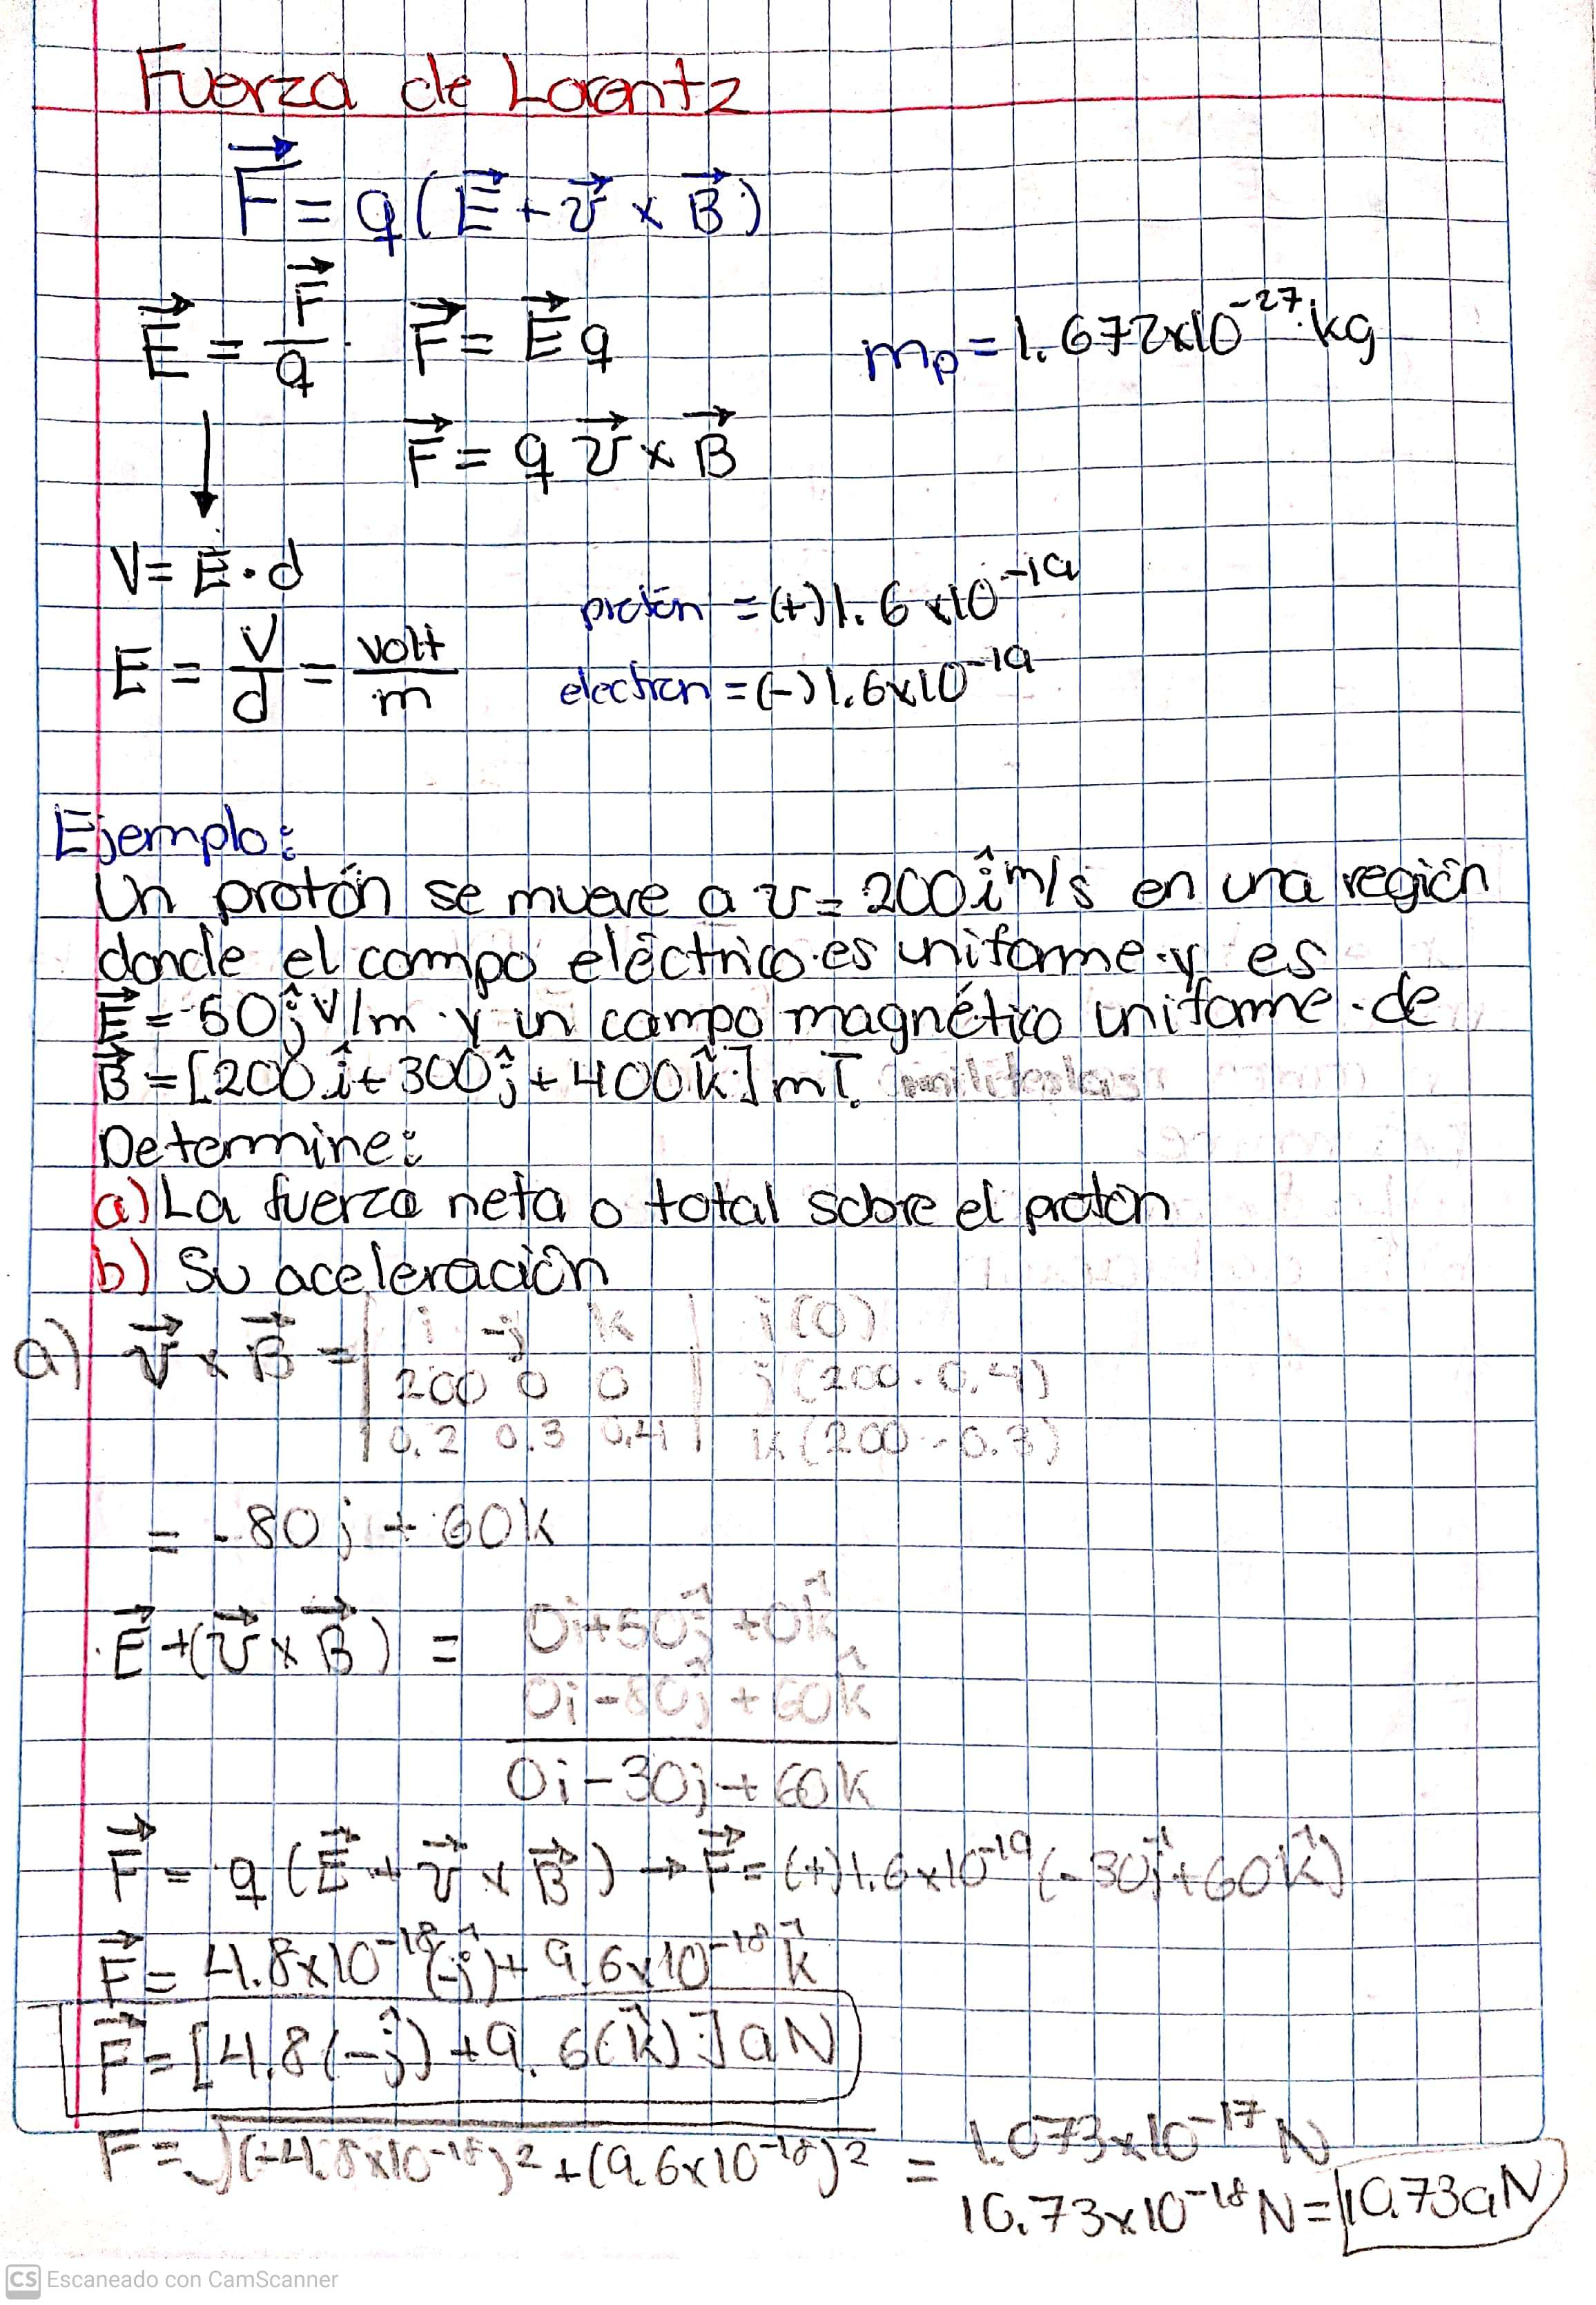 Fuerza de Lorentz
F⃗ = q(E⃗ + v⃗ × B⃗)
E⃗ = F⃗/q    F⃗ = E⃗q    mp = 1.672x10⁻²⁷ kg
F⃗ = q v⃗ × B⃗
V = E · d
protón = (+)1.6x10⁻¹⁹
E = V/d = volt/m
electron = (-)1.6x10⁻¹⁹
Ejemplo:
Un protón se mueve a v = 200î m/s en una región
donde el campo eléctrico es uniforme y es
E⃗ = 50ĵ V/m y un campo magnético uniforme de
B⃗ = [200î + 300ĵ + 400k̂] mT.
Determine:
a) La fuerza neta o total sobre el protón
b) Su aceleración
a) v⃗ × B⃗ = | i -j k |    i(0)
| 200 0 0 |    j(200·0.4)
| 0.2 0.3 0.4 |    k(200·0.3)
= -80j + 60k
E⃗ + (v⃗ × B⃗) = 0i+50j⃗ +0k⃗
0i-80j⃗ + 60k⃗
0i-30j+60k
F⃗ = q(E⃗ + v⃗ × B⃗) → F⃗ = (+)1.6x10⁻¹⁹(-30j⃗+60k⃗)
F⃗ = 4.8x10⁻¹⁸(-j⃗)+9.6x10⁻¹⁸ k⃗
F⃗ = [4.8(-ĵ)+9.6(k⃗)] aN
F = √(-4.8x10⁻¹⁸)² + (9.6x10⁻¹⁸)² = 1.073x10⁻¹⁷ N
10.73x10⁻¹⁸ N = 10.73aN
CS Escaneado con CamScanner